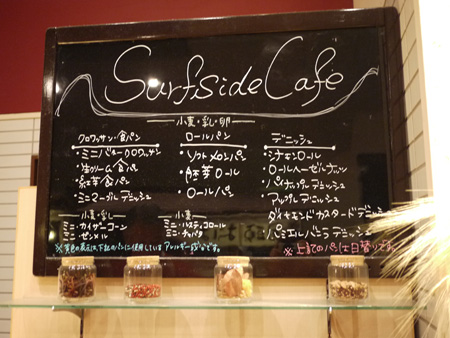 Surfside Cafe
小麦・乳・卵
クロワッサン・食パン
・ミニバタークロワッサン
・生クリーム食パン
・紅芋食パン
・ミニマーブルデニッシュ
ロールパン
・ソフトメロンパン
・胚芽ロール
・ロールパン
デニッシュ
・シナモンロール
・ロールヘーゼルナッツ
・パイナップルデニッシュ
・アップルデニッシュ
・ダイヤモンドカスタードデニッシュ
・バニラデニッシュ
小麦・乳
・ミニ・カイザーコーン
・ミニ・ゼンメル
小麦
ミニ・ルスティコロール
ミニ・チャバタ
※黄色の表示は、下記のパンに使用しているアレルギー成分です。
※上記のパンは日替りです。